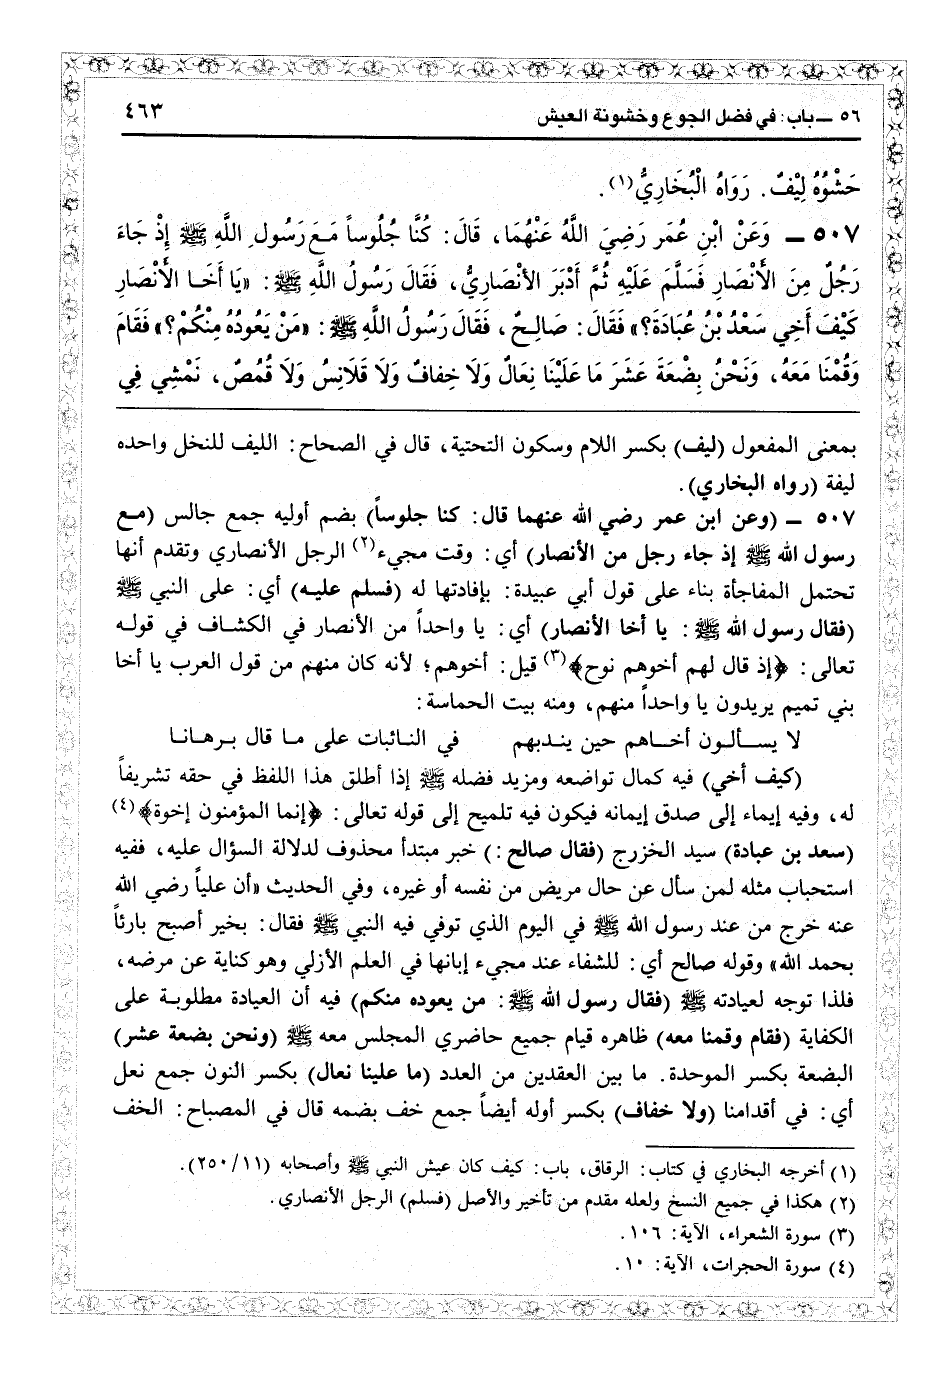 ٥٦ ــ باب: في فضل الجوع وخشونة العيش
٤٦٣
حَشْوُهُ لِيْفٌ. رَوَاهُ الْبُخَارِيُّ(١).
٥٠٧ ــ وَعَنْ ابْنِ عُمَر رَضِيَ اللَّهُ عَنْهُمَا، قَالَ: كُنَّا جُلُوساً مَعَ رَسُولِ اللَّهِ ﷺ إِذْ جَاءَ
رَجُلٌ مِنَ الْأَنْصَارِ فَسَلَّمَ عَلَيْهِ ثُمَّ أَدْبَرَ الأَنْصَارِيُّ، فَقَالَ رَسُولُ اللَّهِ ﷺ: «يا أَخَا الْأَنْصَارِ
كَيْفَ أَخِي سَعْدُ بْنُ عُبَادَةَ؟» فَقَالَ: صَالِحٌ، فَقَالَ رَسُولُ اللَّهِ ﷺ: «مَنْ يَعُودُهُ مِنْكُمْ؟» فَقَامَ
وَقُمْنَا مَعَهُ، وَنَحْنُ بِضْعَةَ عَشَرَ مَا عَلَيْنَا نِعَالٌ وَلَا خِفافٌ وَلَا قَلانِسُ وَلَا قُمُصٌ، نَمْشِي فِي
بمعنى المفعول (ليف) بكسر اللام وسكون التحتية، قال في الصحاح: الليف للنخل واحده
ليفة (رواه البخاري).
٥٠٧ ــ (وعن ابن عمر رضي الله عنهما قال: كنا جلوساً) بضم أوليه جمع جالس (مع
رسول الله ﷺ إذ جاء رجل من الأنصار) أي: وقت مجيء(٢) الرجل الأنصاري وتقدم أنها
تحتمل المفاجأة بناء على قول أبي عبيدة: بإفادتها له (فسلم عليه) أي: على النبي ﷺ
(فقال رسول الله ﷺ: يا أخا الأنصار) أي: يا واحداً من الأنصار في الكشاف في قوله
تعالى: ﴿إذ قال لهم أخوهم نوح﴾(٣) قيل: أخوهم؛ لأنه كان منهم من قول العرب يا أخا
بني تميم يريدون يا واحداً منهم، ومنه بيت الحماسة:
لا يســألـون أخـاهم حين ينـدبهم في النـائبات على مـا قال بـرهانـا
(كيف أخي) فيه كمال تواضعه ومزيد فضله ﷺ إذا أطلق هذا اللفظ في حقه تشريفاً
له، وفيه إيماء إلى صدق إيمانه فيكون فيه تلميح إلى قوله تعالى: ﴿إنما المؤمنون إخوة﴾(٤)
(سعد بن عبادة) سيد الخزرج (فقال صالح:) خبر مبتدأ محذوف لدلالة السؤال عليه، ففيه
استحباب مثله لمن سأل عن حال مريض من نفسه أو غيره، وفي الحديث «أن علياً رضي الله
عنه خرج من عند رسول الله ﷺ في اليوم الذي توفي فيه النبي ﷺ فقال: بخير أصبح بارئاً
بحمد الله» وقوله صالح أي: للشفاء عند مجيء إبانها في العلم الأزلي وهو كناية عن مرضه،
فلذا توجه لعيادته ﷺ (فقال رسول الله ﷺ: من يعوده منكم) فيه أن العيادة مطلوبة على
الكفاية (فقام وقمنا معه) ظاهره قيام جميع حاضري المجلس معه ﷺ (ونحن بضعة عشر)
البضعة بكسر الموحدة. ما بين العقدين من العدد (ما علينا نعال) بكسر النون جمع نعل
أي: في أقدامنا (ولا خفاف) بكسر أوله أيضاً جمع خف بضمه قال في المصباح: الخف
(١) أخرجه البخاري في كتاب: الرقاق، باب: كيف كان عيش النبي ﷺ وأصحابه (٢٥٠/١١).
(٢) هكذا في جميع النسخ ولعله مقدم من تأخير والأصل (فسلم) الرجل الأنصاري.
(٣) سورة الشعراء، الآية: ١٠٦.
(٤) سورة الحجرات، الآية: ١٠.